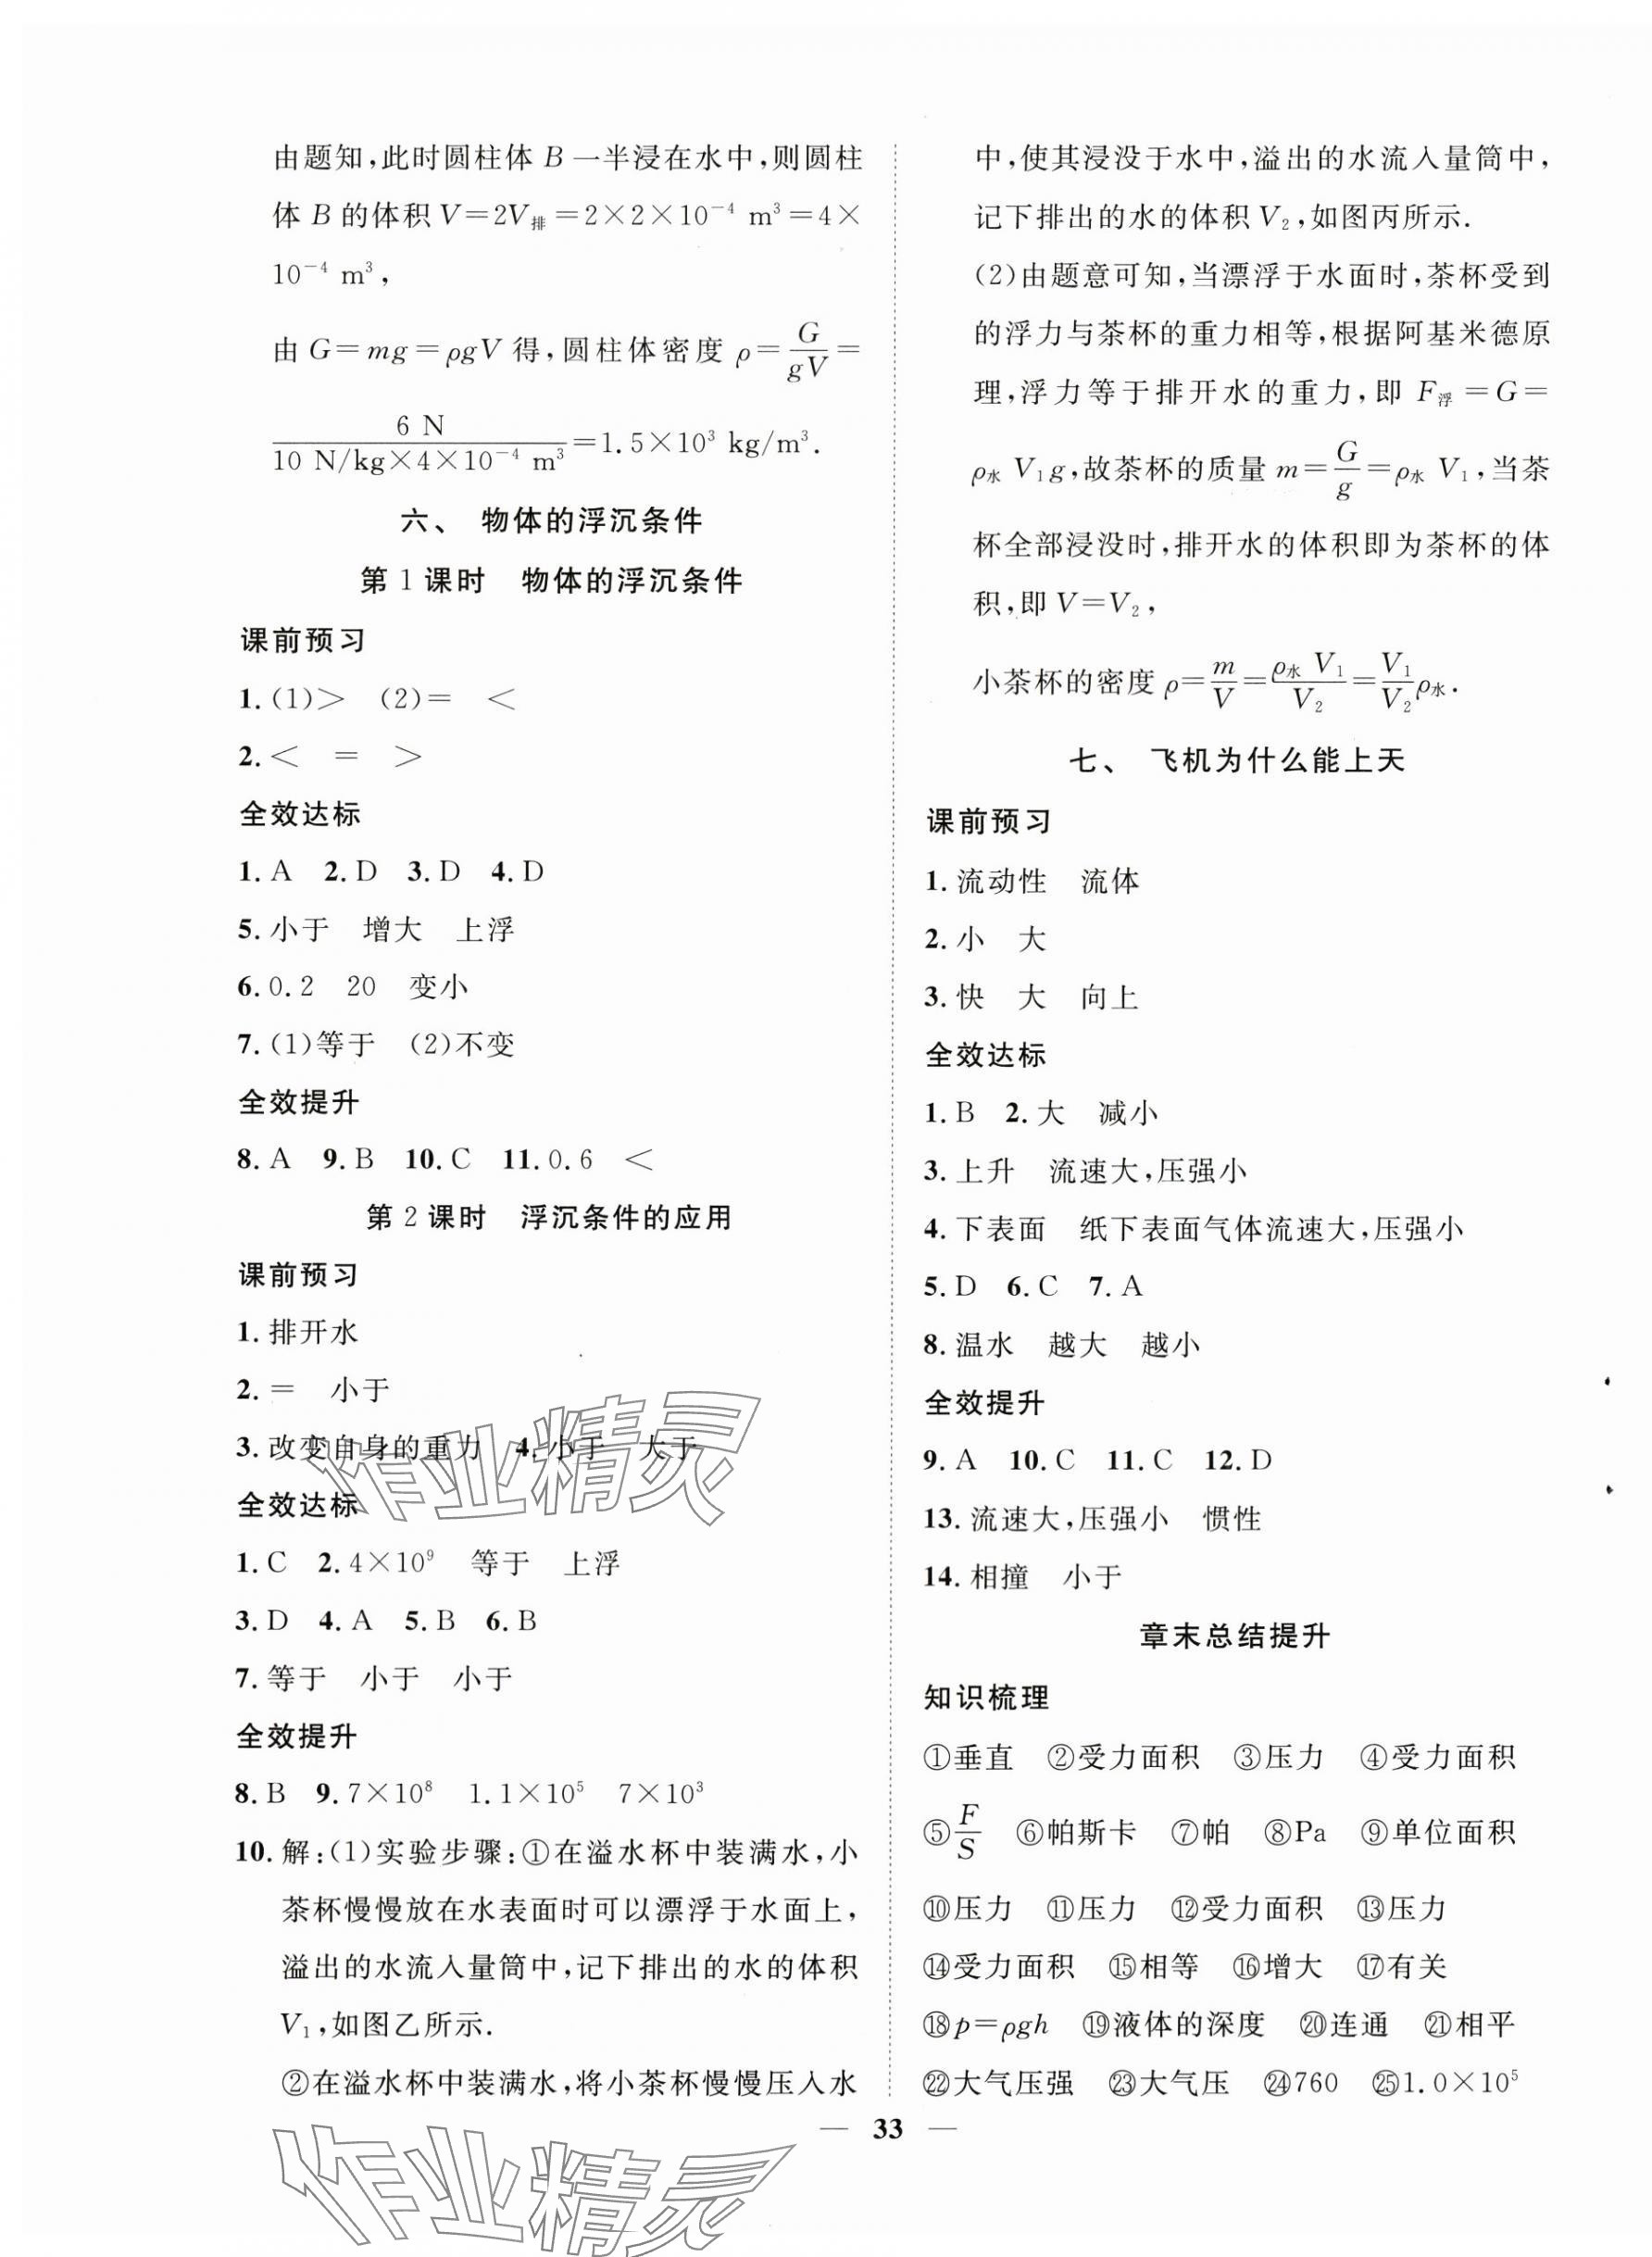 由题知,此时圆柱体 B 一半浸在水中,则圆柱
体 B 的体积 V=2V排=2×2×10⁻⁴ m³=4×
10⁻⁴ m³,
由 G=mg=ρgV 得,圆柱体密度 ρ=G/gV=
6 N/10 N/kg×4×10⁻⁴ m³=1.5×10³ kg/m³.
六、 物体的浮沉条件
第 1 课时 物体的浮沉条件
课前预习
1.(1)> (2)= <
2.< = >
全效达标
1.A 2.D 3.D 4.D
5.小于 增大 上浮
6.0.2 20 变小
7.(1)等于 (2)不变
全效提升
8.A 9.B 10.C 11.0.6 <
第 2 课时 浮沉条件的应用
课前预习
1.排开水
2.= 小于
3.改变自身的重力 4.小于 大于
全效达标
1.C 2.4×10⁹ 等于 上浮
3.D 4.A 5.B 6.B
7.等于 小于 小于
全效提升
8.B 9.7×10⁸ 1.1×10⁵ 7×10³
10.解:(1)实验步骤:①在溢水杯中装满水,小
茶杯慢慢放在水表面时可以漂浮于水面上,
溢出的水流入量筒中,记下排出的水的体积
V₁,如图乙所示.
②在溢水杯中装满水,将小茶杯慢慢压入水
中,使其浸没于水中,溢出的水流入量筒中,
记下排出的水的体积 V₂,如图丙所示.
(2)由题意可知,当漂浮于水面时,茶杯受到
的浮力与茶杯的重力相等,根据阿基米德原
理,浮力等于排开水的重力,即 F浮=G=
ρ水 V₁g,故茶杯的质量 m=G/g=ρ水 V₁,当茶
杯全部浸没时,排开水的体积即为茶杯的体
积,即 V=V₂,
小茶杯的密度 ρ=m/V=ρ水 V₁/V₂=V₁/V₂ρ水.
七、 飞机为什么能上天
课前预习
1.流动性 流体
2.小 大
3.快 大 向上
全效达标
1.B 2.大 减小
3.上升 流速大,压强小
4.下表面 纸下表面气体流速大,压强小
5.D 6.C 7.A
8.温水 越大 越小
全效提升
9.A 10.C 11.C 12.D
13.流速大,压强小 惯性
14.相撞 小于
章末总结提升
知识梳理
①垂直 ②受力面积 ③压力 ④受力面积
⑤F/S ⑥帕斯卡 ⑦帕 ⑧Pa ⑨单位面积
⑩压力 ⑪压力 ⑫受力面积 ⑬压力
⑭受力面积 ⑮相等 ⑯增大 ⑰有关
⑱p=ρgh ⑲液体的深度 ⑳连通 ㉑相平
㉒大气压强 ㉓大气压 ㉔760 ㉕1.0×10⁵
— 33 —
作业精灵
作业精灵